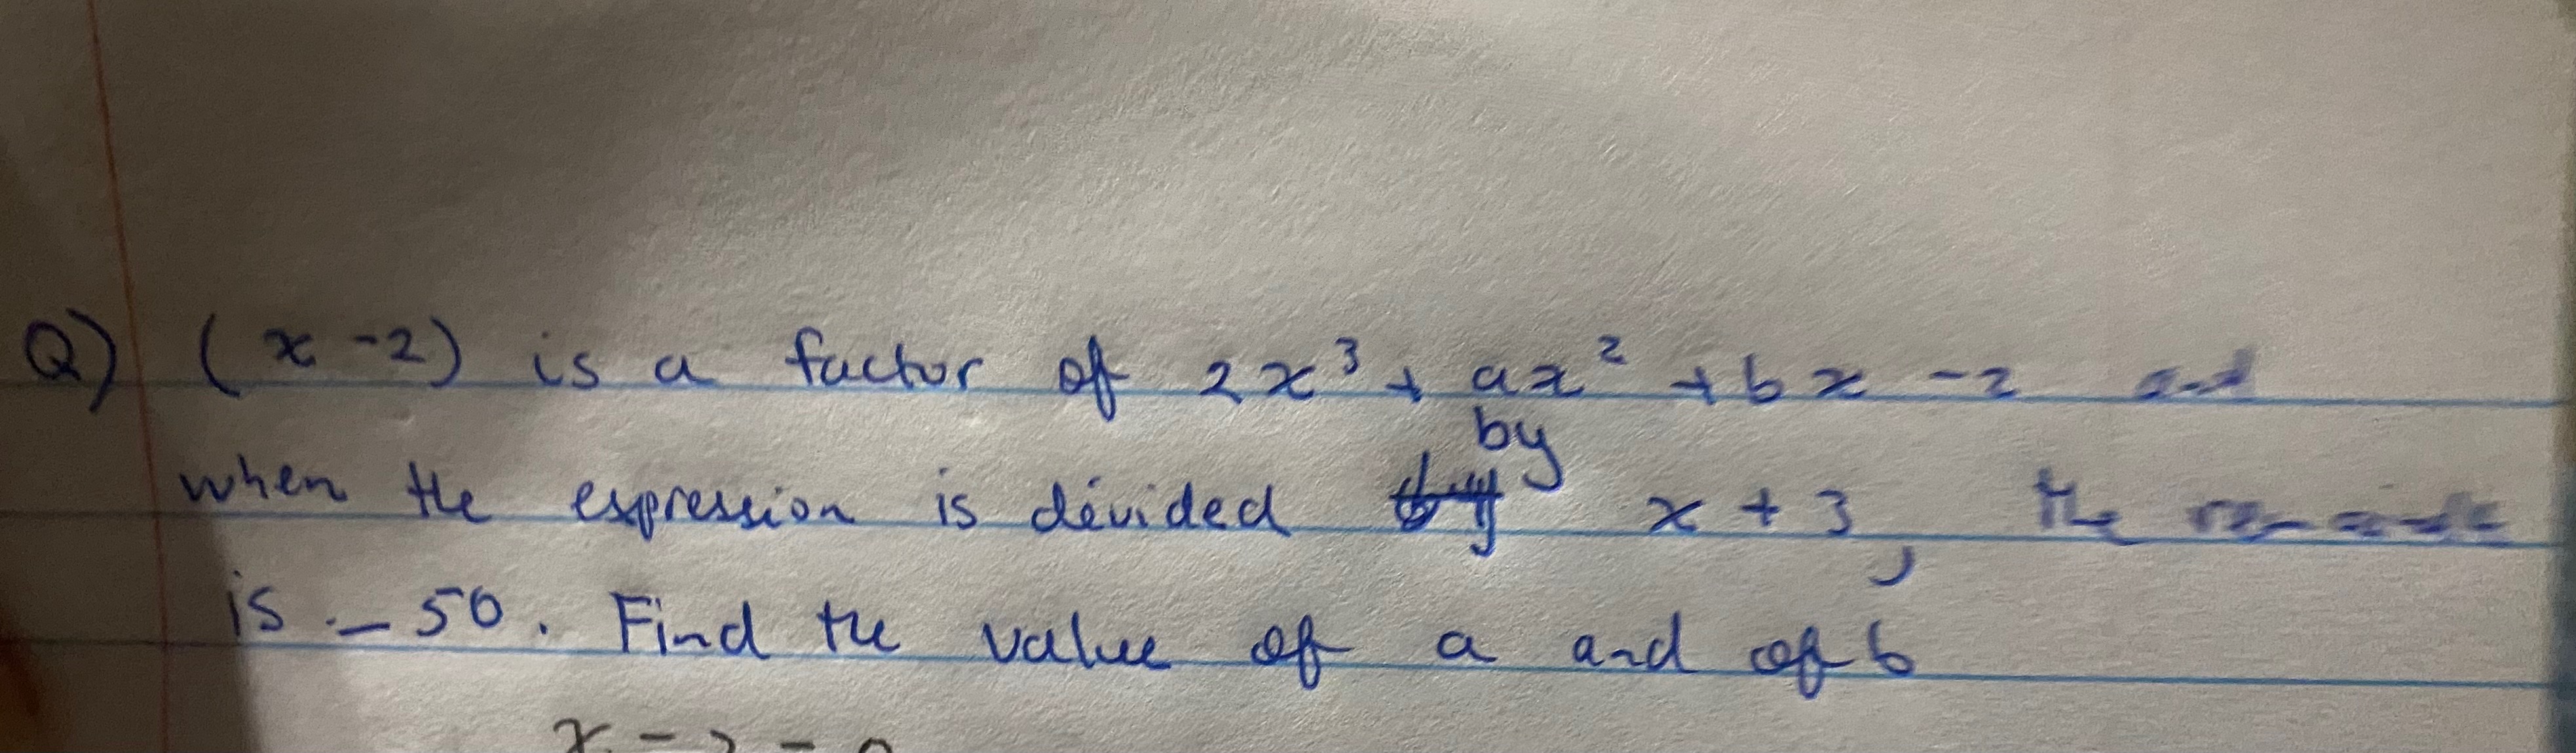 Q) (x - 2) is a factor of 2x³ + ax² + bx - 2 and
when the expression is divided by x + 3, the
is - 50. Find the value of a and of b